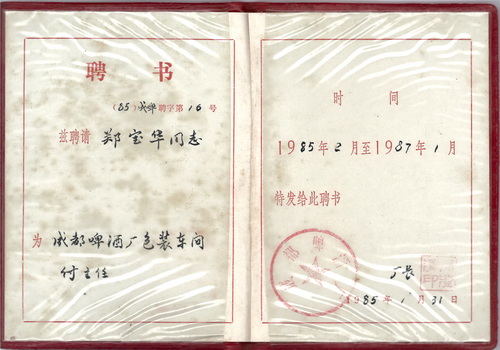 聘 书
(85)成啤聘字第16号
兹聘请 郑宝华同志
为 成都啤酒厂包装车间
付主任
时 间
1985年2月至1987年1月
特发给此聘书
厂长
1985年1月31日